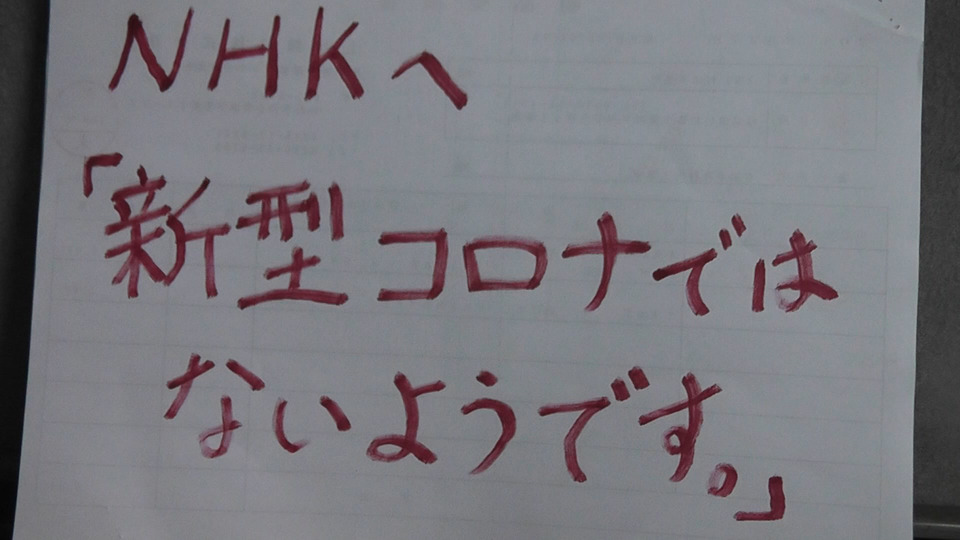 NHKへ
「新型コロナでは
ないようです。」